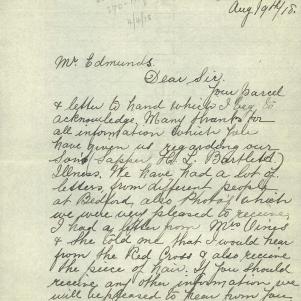 Aug 19th/18.
Mr Edmunds.
Dear Sir.
Your parcel
& letter to hand which I beg to
acknowledge. Many thanks for
all information which you
have given us regarding our
Sons Sapper H. L. Bartlett)
Illness. We have had a lot of
letters from different people
at Bedford, also Photos which
we were very pleased to receive
I had a letter from Mrs Vines
& she told me that I would hear
from the Red Cross & also receive
the piece of hair. If you should
receive any other information we
will be pleased to hear from you